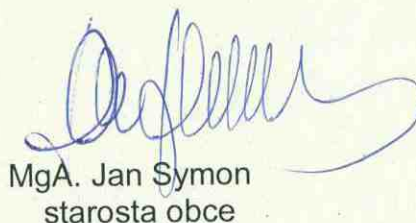 MgA. Jan Symon
starosta obce